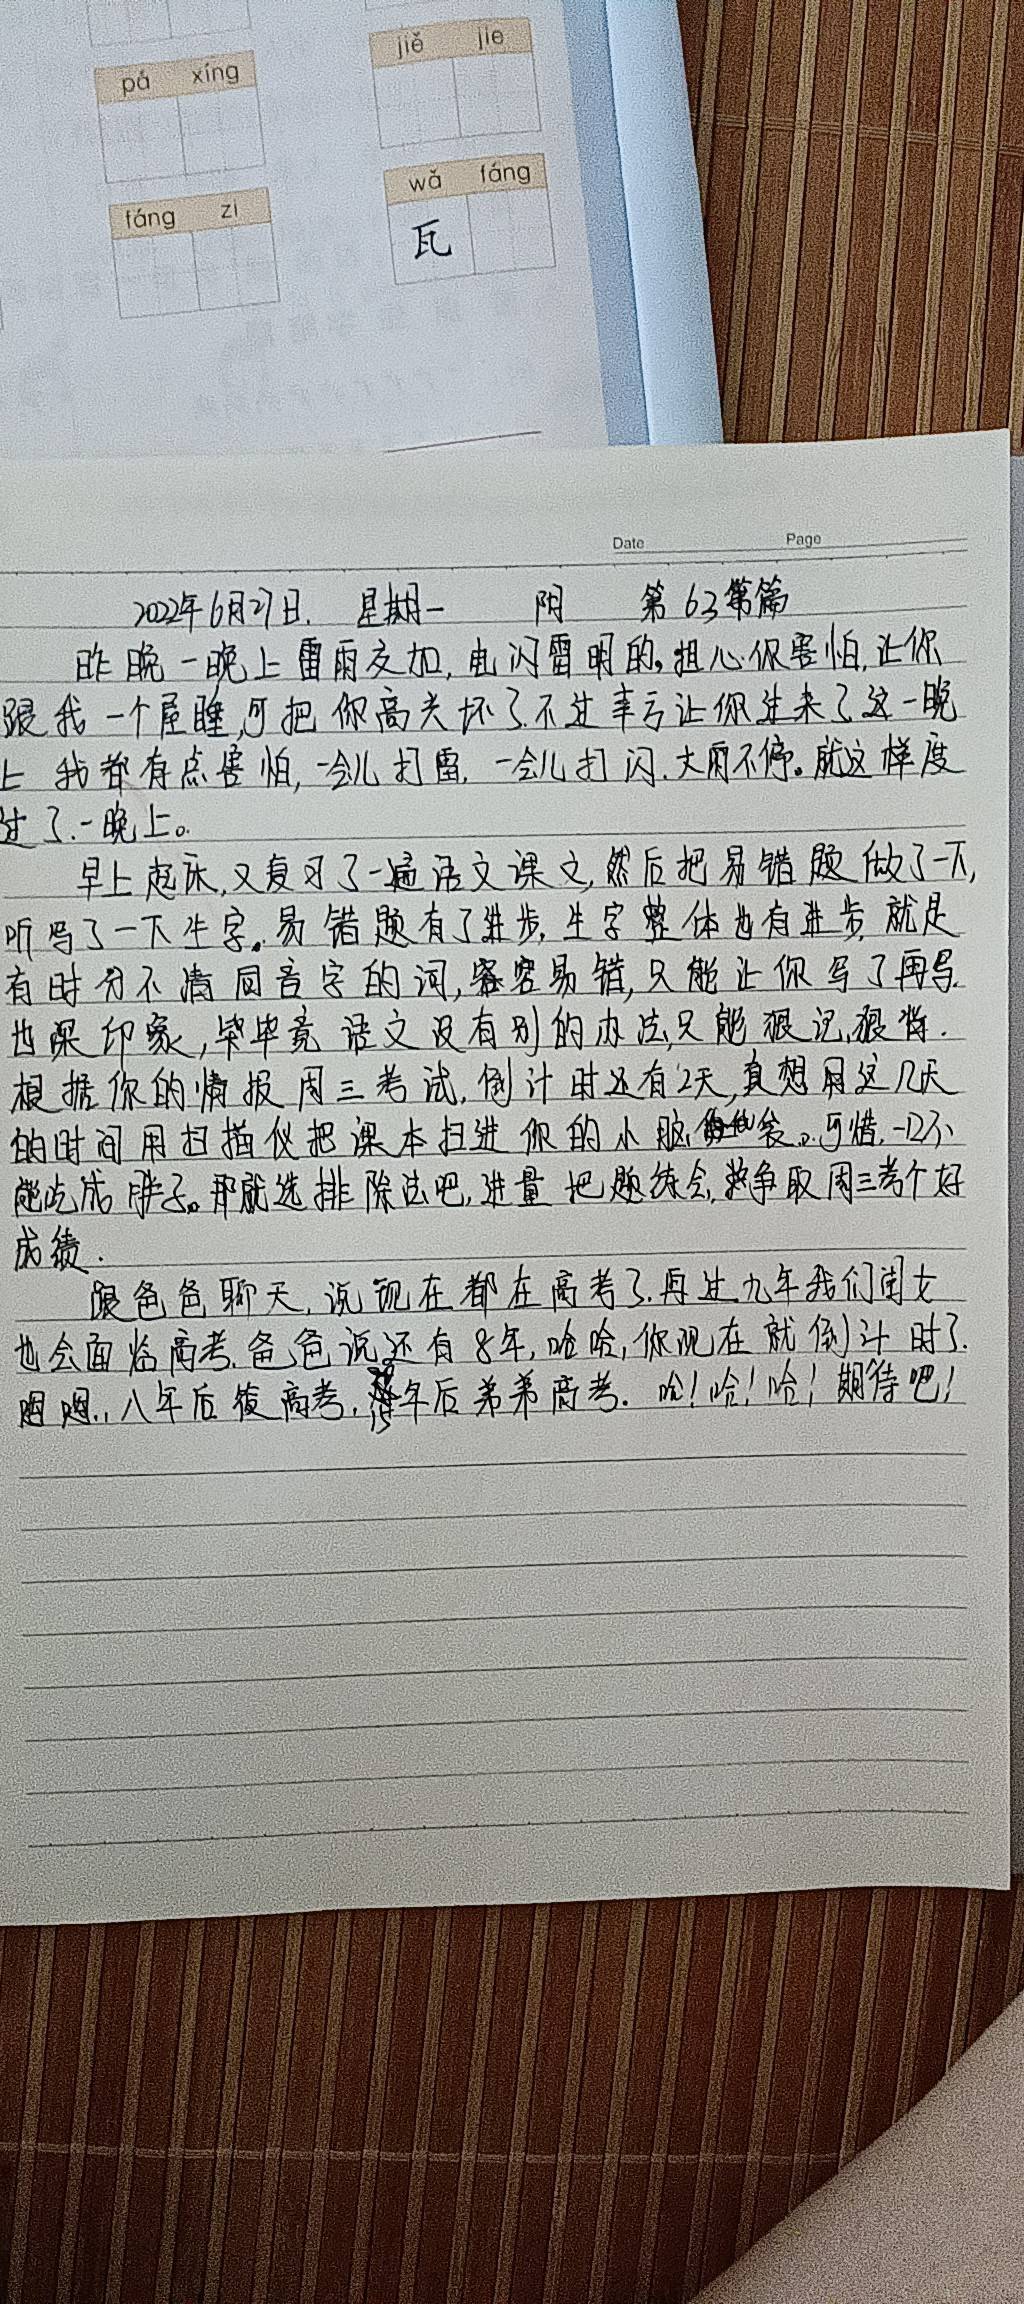 pá xíng
jiě jie
fáng zi
wǎ fáng
瓦
Date Page
2022年6月27日. 星期一 阴 第63篇
昨晚一晚上雷雨交加,电闪雷明的,担心你害怕,让你
跟我一个屋睡,可把你高兴坏了.不过幸亏让你过来了这一晚
上我都有点害怕,一会儿打雷,一会儿打闪.大雨不停。就这样度
过了.一晚上。
早上起床,又复习了一遍语文课文,然后把易错题做了一下,
听写了一下生字。易错题有了进步,生字整体也有进步,就是
有时分不清同音字的词,容易错,只能让你写了再写.
加深印象,毕竟语文没有别的办法,只能狠记,狠背.
根据你的情报周三考试,倒计时还有2天,真想用这几天
的时间用扫描仪把课本扫进你的小脑袋。可惜,一口不
能吃成胖子。那就选排除法吧,进量把题练会,争取周三考个好
成绩.
跟爸爸聊天,说现在都在高考了.再过九年我们闺女
也会面临高考.爸爸说还有8年,哈哈,你现在就倒计时了.
八年后你高考,15年后弟弟高考.哈!哈!哈!期待吧!